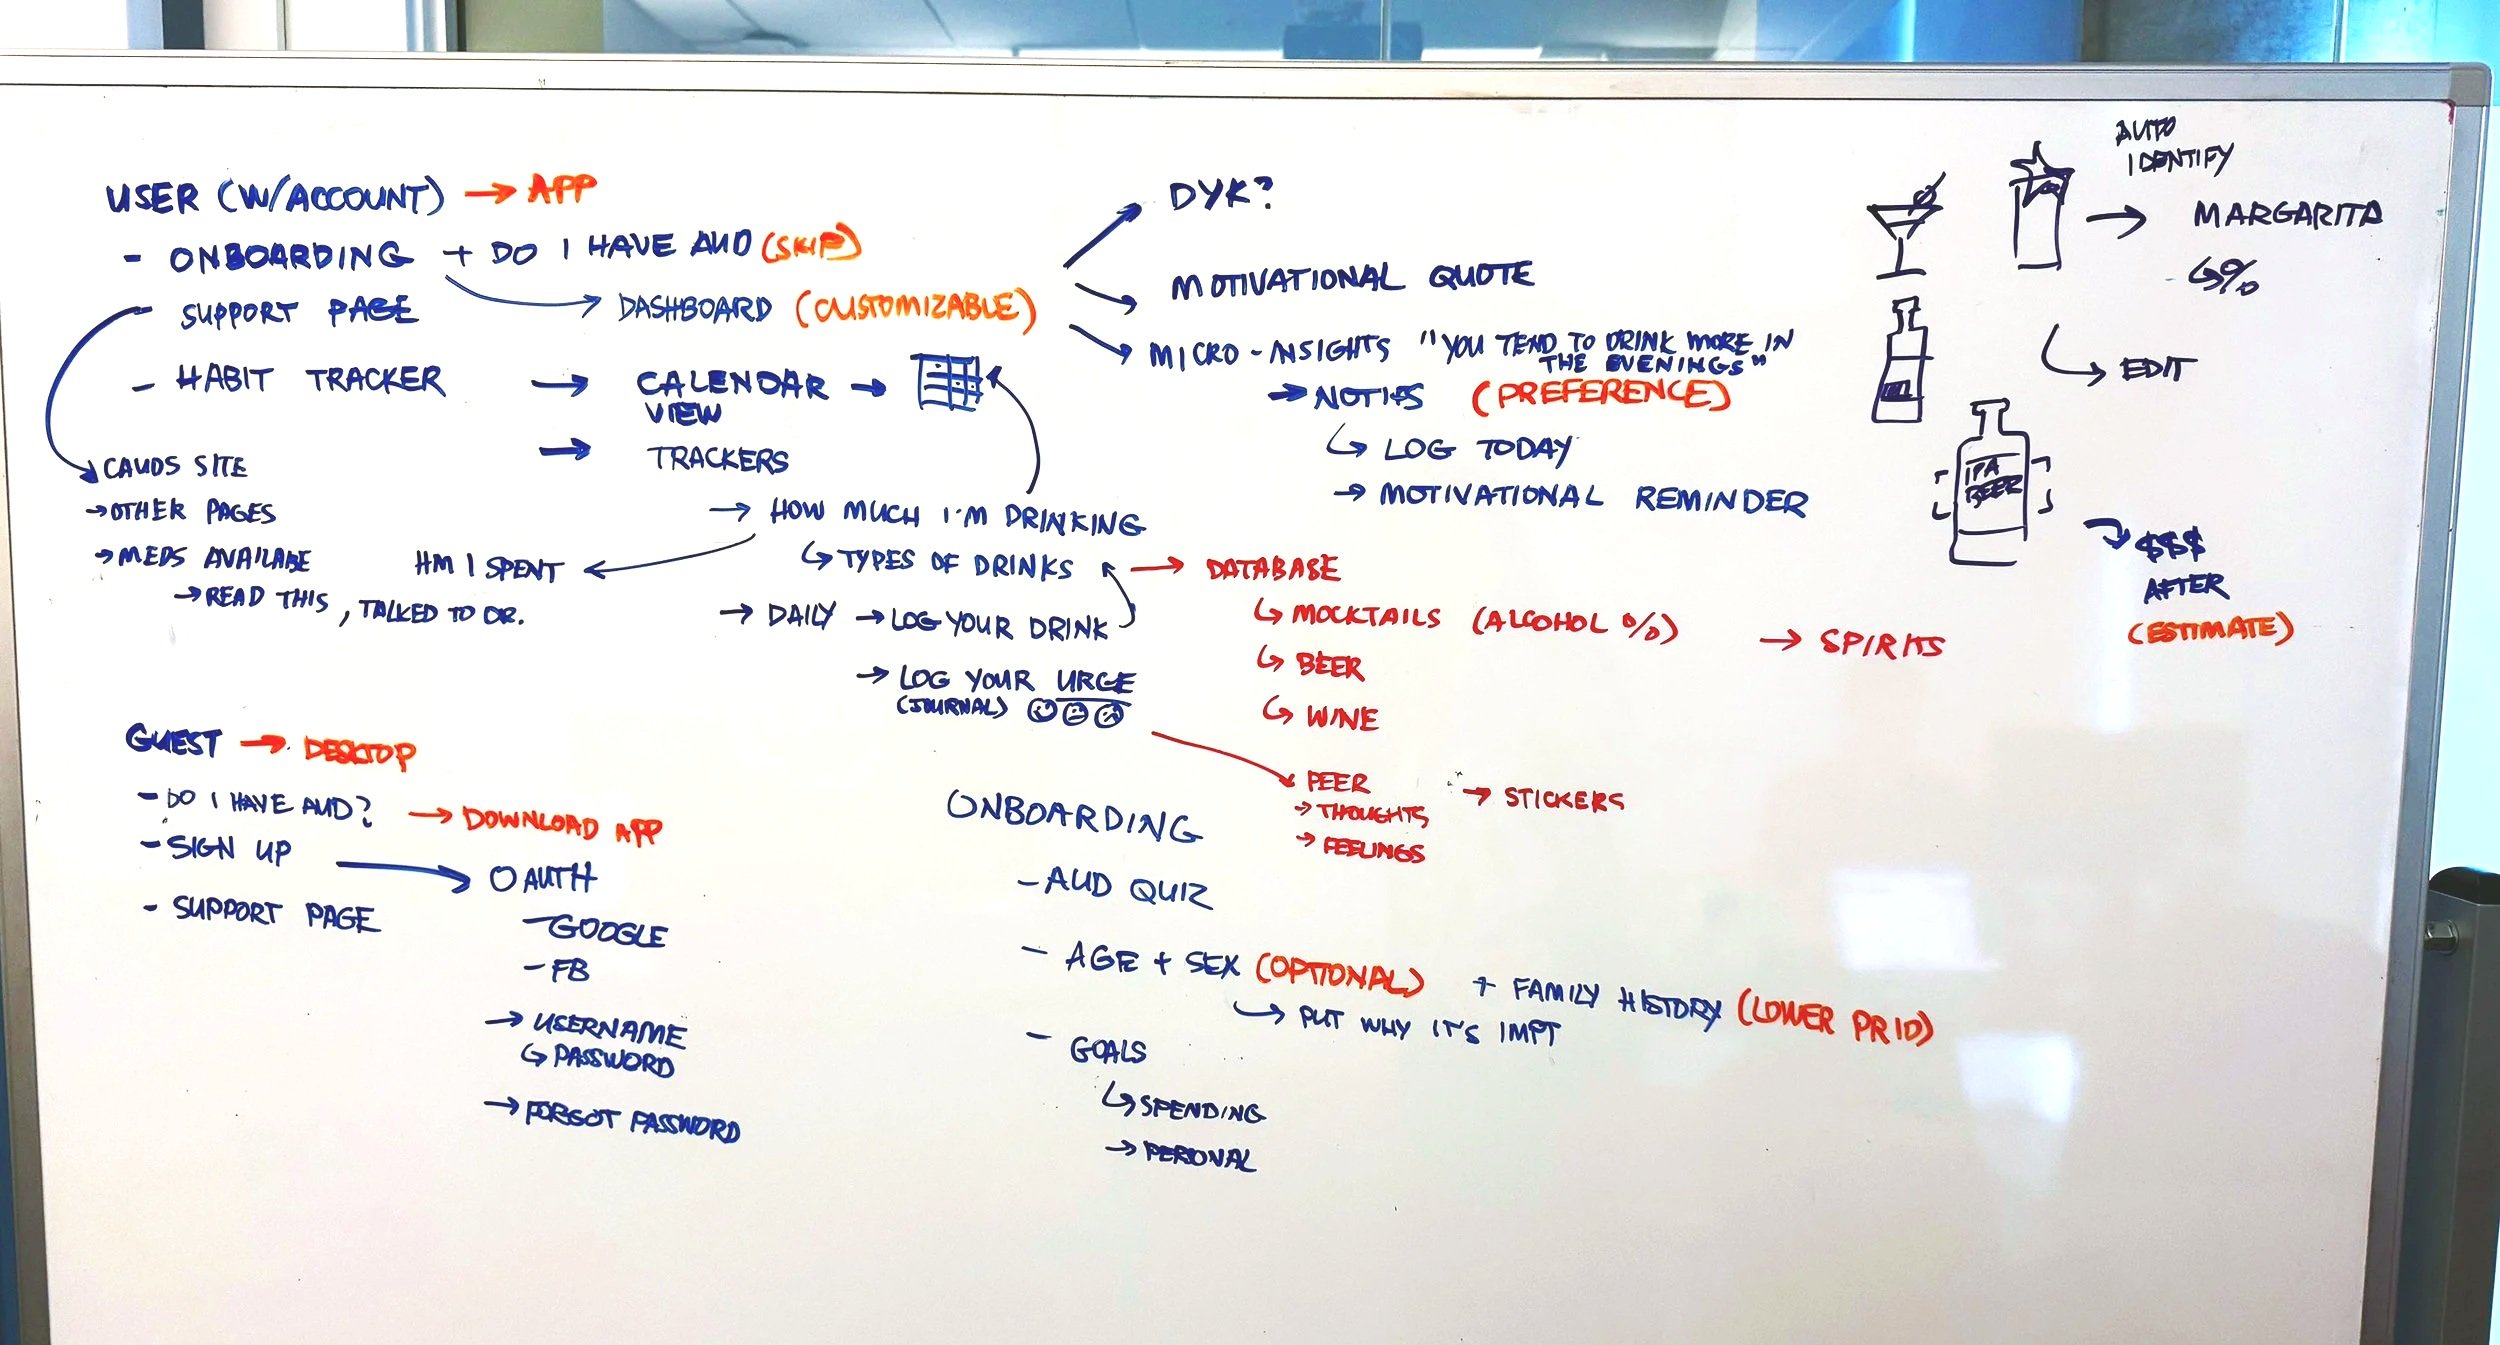 USER (W/ACCOUNT) → APP
- ONBOARDING + DO I HAVE AUD (SKIP)
→ DASHBOARD (CUSTOMIZABLE)
SUPPORT PAGE
- HABIT TRACKER → CALENDAR VIEW →
→ TRACKERS
CAUDS SITE
→ OTHER PAGES
→ MEDS AVAILABE
→ READ THIS, TALKED TO DR.
→ HOW MUCH I'M DRINKING
HM I SPENT
↳ TYPES OF DRINKS
→ DAILY → LOG YOUR DRINK
→ LOG YOUR URGE
(JOURNAL)
DYK?
MOTIVATIONAL QUOTE
MICRO-INSIGHTS "YOU TEND TO DRINK MORE IN
THE EVENINGS"
→ NOTIFS (PREFERENCE)
↳ LOG TODAY
→ MOTIVATIONAL REMINDER
→ DATABASE
↳ MOCKTAILS (ALCOHOL %) → SPIRITS
↳ BEER
↳ WINE
PEER → STICKERS
→ THOUGHTS
→ FEELINGS
AUTO
IDENTIFY
→ MARGARITA
↳ %
↳ EDIT
IPA
BEER
$$$
AFTER
(ESTIMATE)
GUEST → DESKTOP
- DO I HAVE AUD? → DOWNLOAD APP
- SIGN UP
- SUPPORT PAGE
O AUTH
- GOOGLE
- FB
→ USERNAME
↳ PASSWORD
→ FORGOT PASSWORD
ONBOARDING
- AUD QUIZ
- AGE + SEX (OPTIONAL) + FAMILY HISTORY (LOWER PRIO)
↳ PUT WHY IT'S IMPT
- GOALS
↳ SPENDING
→ PERONAL